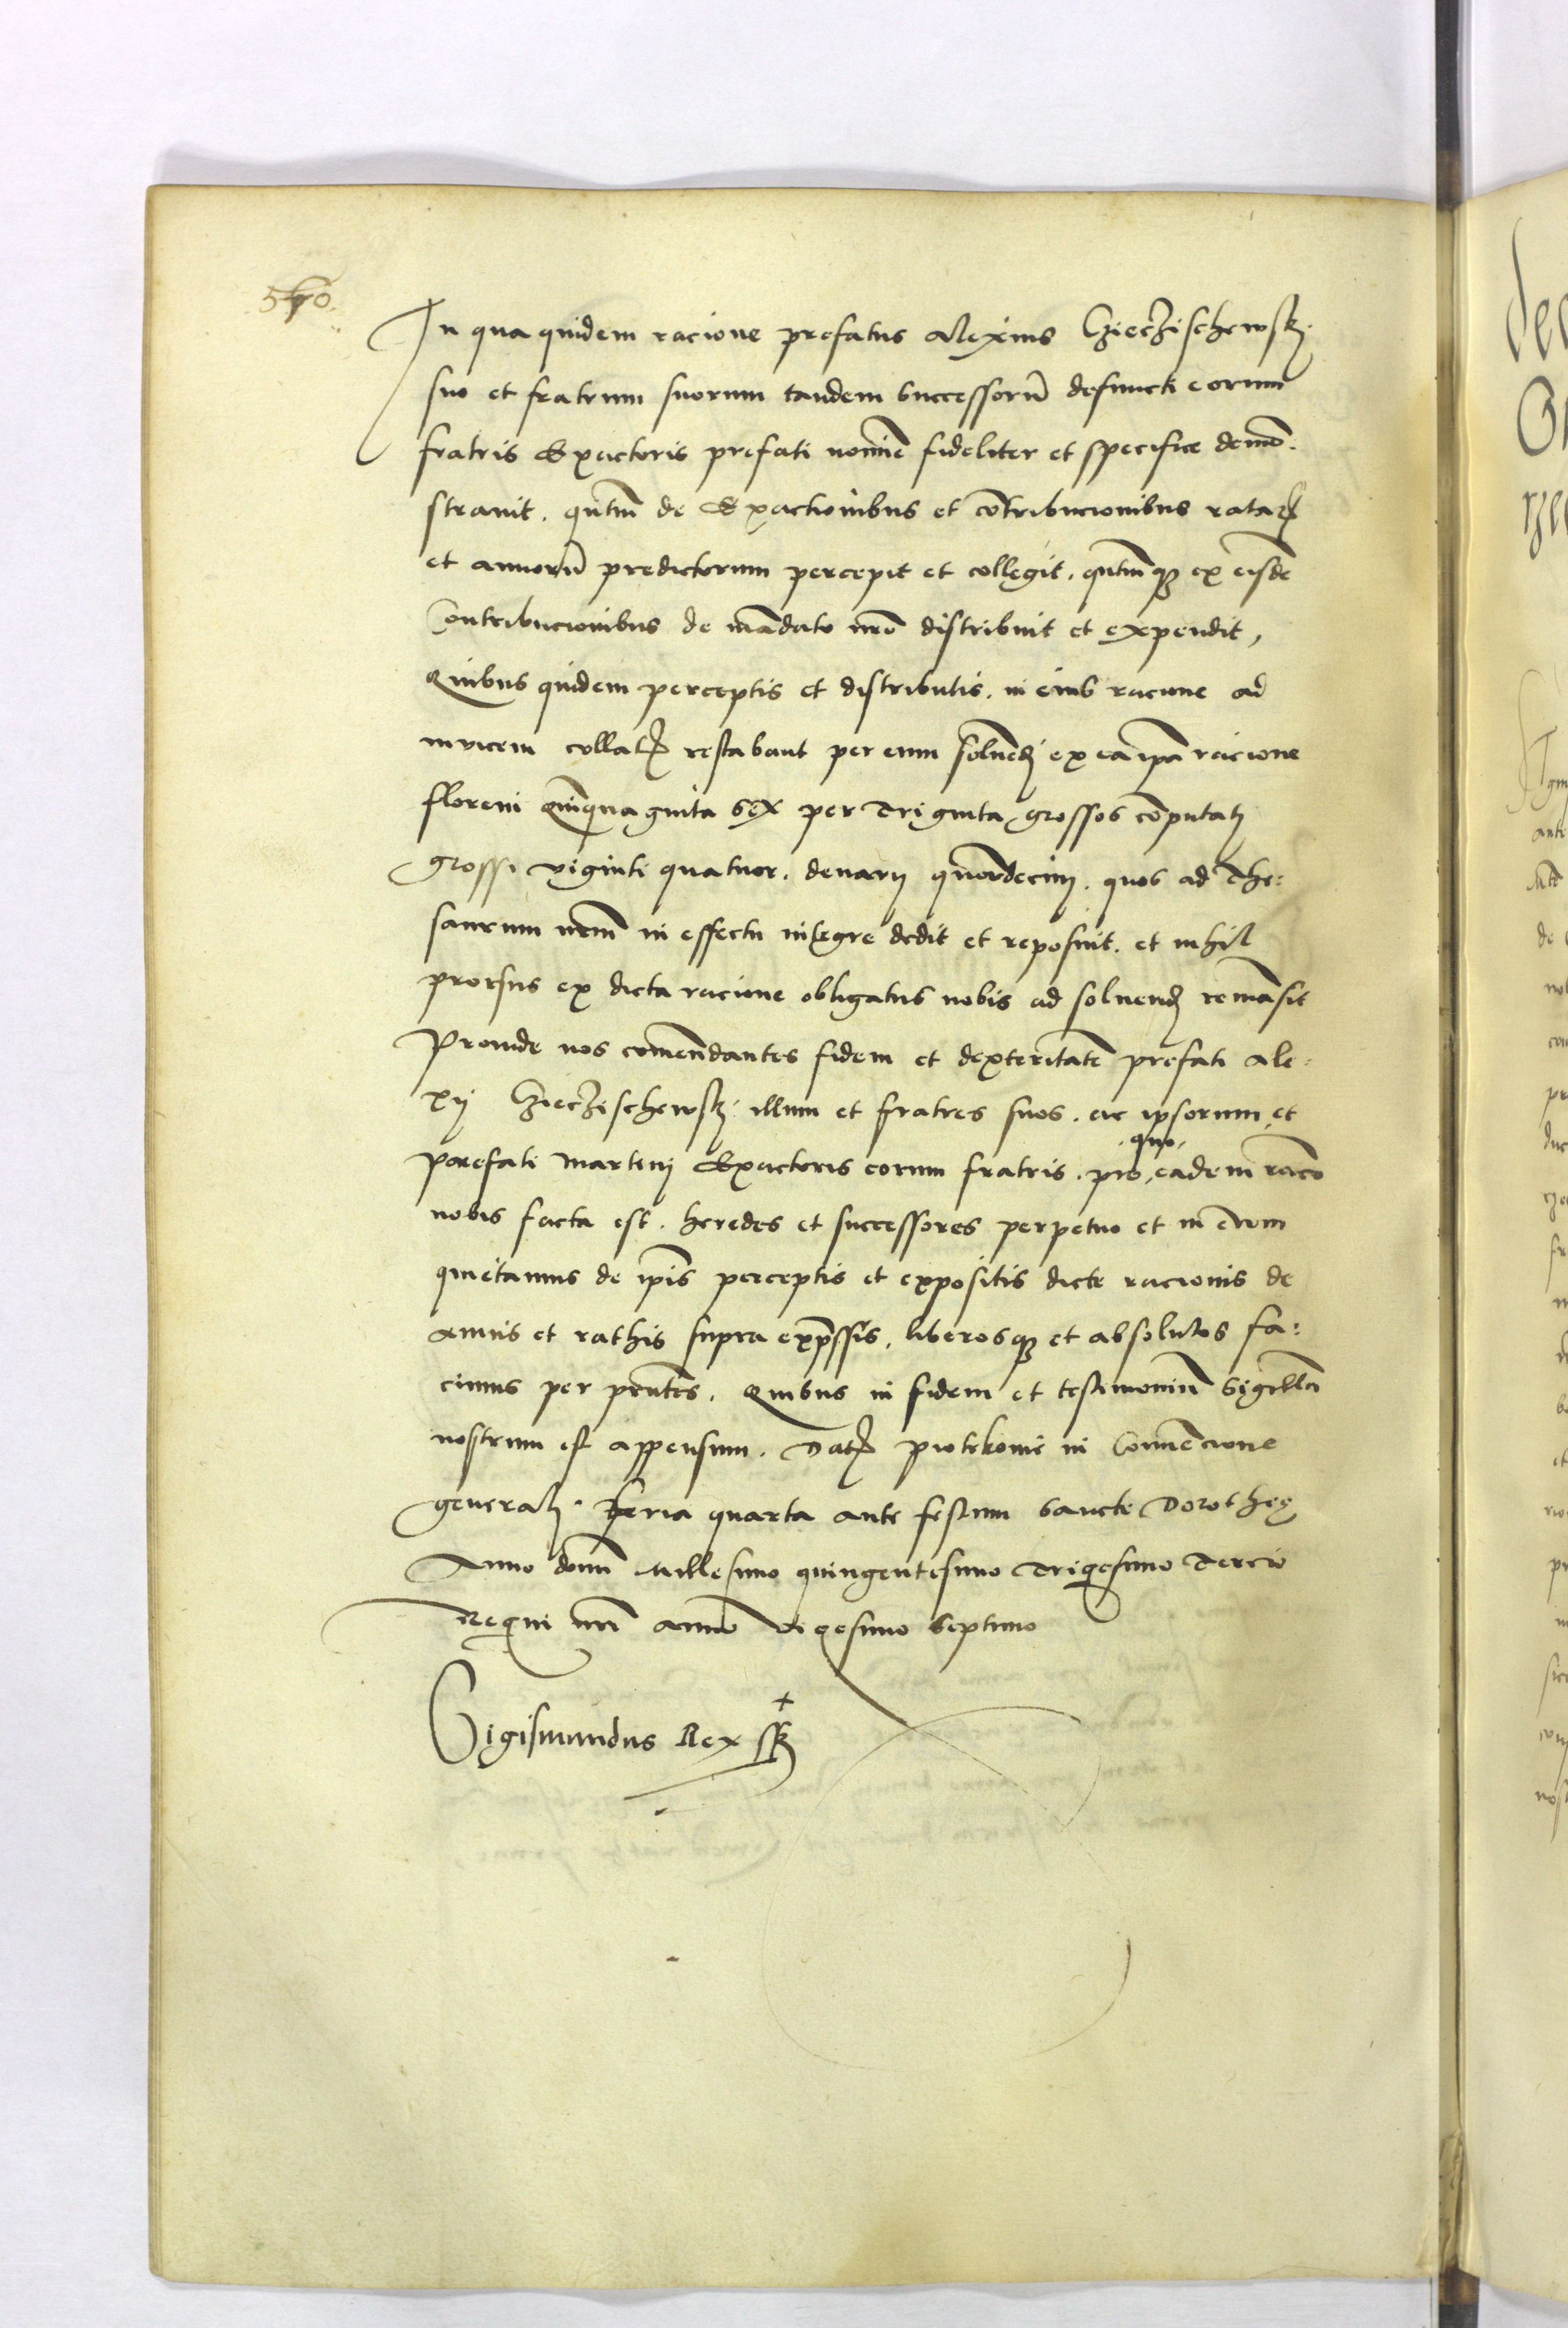 In qua quidem racione prefatus Alexius Cziecziſchewſkj
ſuo et fratrum ſuorum tandem Succeſſorū defuncti eorum
fratris Exactoris prefati nomīe fideliter et ſpecifice demō:
ſtrauit. qntm̄ de Exactionibus et cōtribucionibus ratarꝝ
et annorū predictorum percepit et collegit. qntm̄qꝫ ex eiſdē
Contribucionibus de mādato nrō diſtribuit et expendit,
Quibus quidem perceptis et diſtributis. in eius racione ad
invicem collatꝭ reſtabant per eum ſoluēdj ex ea ipā racione
floreni Quīquaginta Sex per Triginta groſſos cōputatj
groſſi viginti quatuor. denarij quordecim. quos ad The:
ſaurum nrm̄ in effectu integre dedit et repoſuit. et nihil
prorſus ex dicta racione obligatus nobis ad ſoluendꝭ remāſit
Proinde nos comēndantes fidem et dexteritatē prefati Ale:
xij Cziecziſchewſkj illum et fratres ſuos. ac ipſorum et
Prefati Martinj Exactoris eorum fratris. pro quo eadem racō
nobis facta eſt. heredes et ſucceſſores perpetuo et in euum
quietamus de ipīs perceptis et expoſitis dicte racionis de
annis et rathis ſupra exp̄ſſis, liberosqꝫ et abſolutos fa:
cimus per pn̄tes. Quibus in fidem et teſtimoniū Sigillū
noſtrum eſt appenſum. Datꝭ Piotrkowie in Conuēcione
generalj. Feria quarta ante feſtum Sancte Dorotheę
Anno domī Milleſimo quingenteſimo Trigeſimo Tercio
Regni nrī anno vigeſimo Septimo
Sigiſmundus Rex ſſt